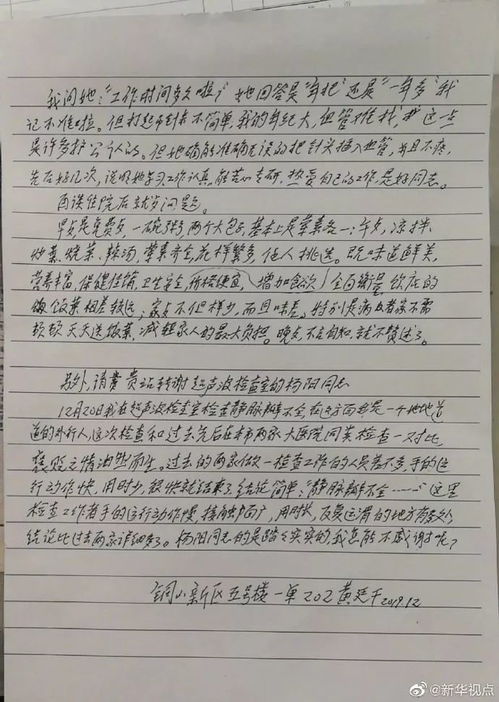 我问她："工作时间多久啦？"她回答是"年把"还是"一年多"我
记不准啦。但打起针来不简单，我的年纪大，血管难找，这一点
是许多护士公认的。但她确能准确无误的把针头插入血管，并且不疼，
先后好几次，说明她学习工作认真，能苦心专研，热爱自己的工作，是好同志。
再谈住院后就
早点是免费点，一碗粥两个大包子，基本上是荤素各一；午点，凉拌、
炒素、烧菜、辣汤，荤素齐全，花样繁多，任人挑选。既味道鲜美，
营养丰富，保健佳铺，卫生安全，价格便宜，增加食欲，全面衡量
饭菜相差较远，家点不但样少，而且味差。特别是病患者家不需
天天送饭菜，减轻家人的最大负担。晚点，不去自知，就不赘述了。
另外，请贵 转谢超声波检查室的杨阳同志
12月20日我在超声波检查室检查静脉瓣不全，在这方面我是一个地地道
道的外行人，这次检查和过去先后在本市两家大医院同类检查一对比，
褒贬之情油然而生。过去的两家做一检查工作的人员差不多，手的运
行动作快，用时少，很快就结束了，结论简单："静脉瓣不全……"这里
检查工作者手的运行动作慢，接触面广，用时长，反复运滑的地方有多处
结论比过去两家详细多了。杨阳同志的是踏踏实实的，我怎能不感谢呢？
铜山新区五号楼一单202 黄廷干 2019.12
@新华视点